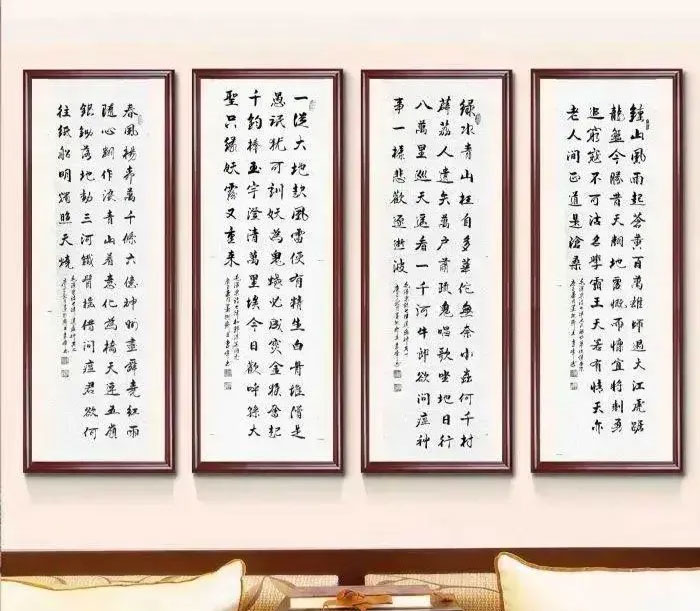 鐘山風雨起蒼黃百萬雄師過大江虎踞
龍盤今勝昔天翻地覆慨而慷宜將剩勇
追窮寇不可沽名學霸王天若有情天亦
老人間正道是滄桑
綠水青山枉自多華佗無奈小蟲何千村
薜荔人遺矢萬戶蕭疏鬼唱歌坐地日行
八萬里巡天遙看一千河牛郎欲問瘟神
事一樣悲歡逐逝波
一從大地起風雷便有精生白骨堆僧是
愚氓猶可訓妖為鬼蜮必成災金猴奮起
千鈞棒玉宇澄清萬里埃今日歡呼孫大
聖只緣妖霧又重來
春風楊柳萬千條六億神州盡舜堯紅雨
隨心翻作浪青山着意化為橋天連五嶺
銀鋤落地動三河鐵臂搖借問瘟君欲何
往紙船明燭照天燒